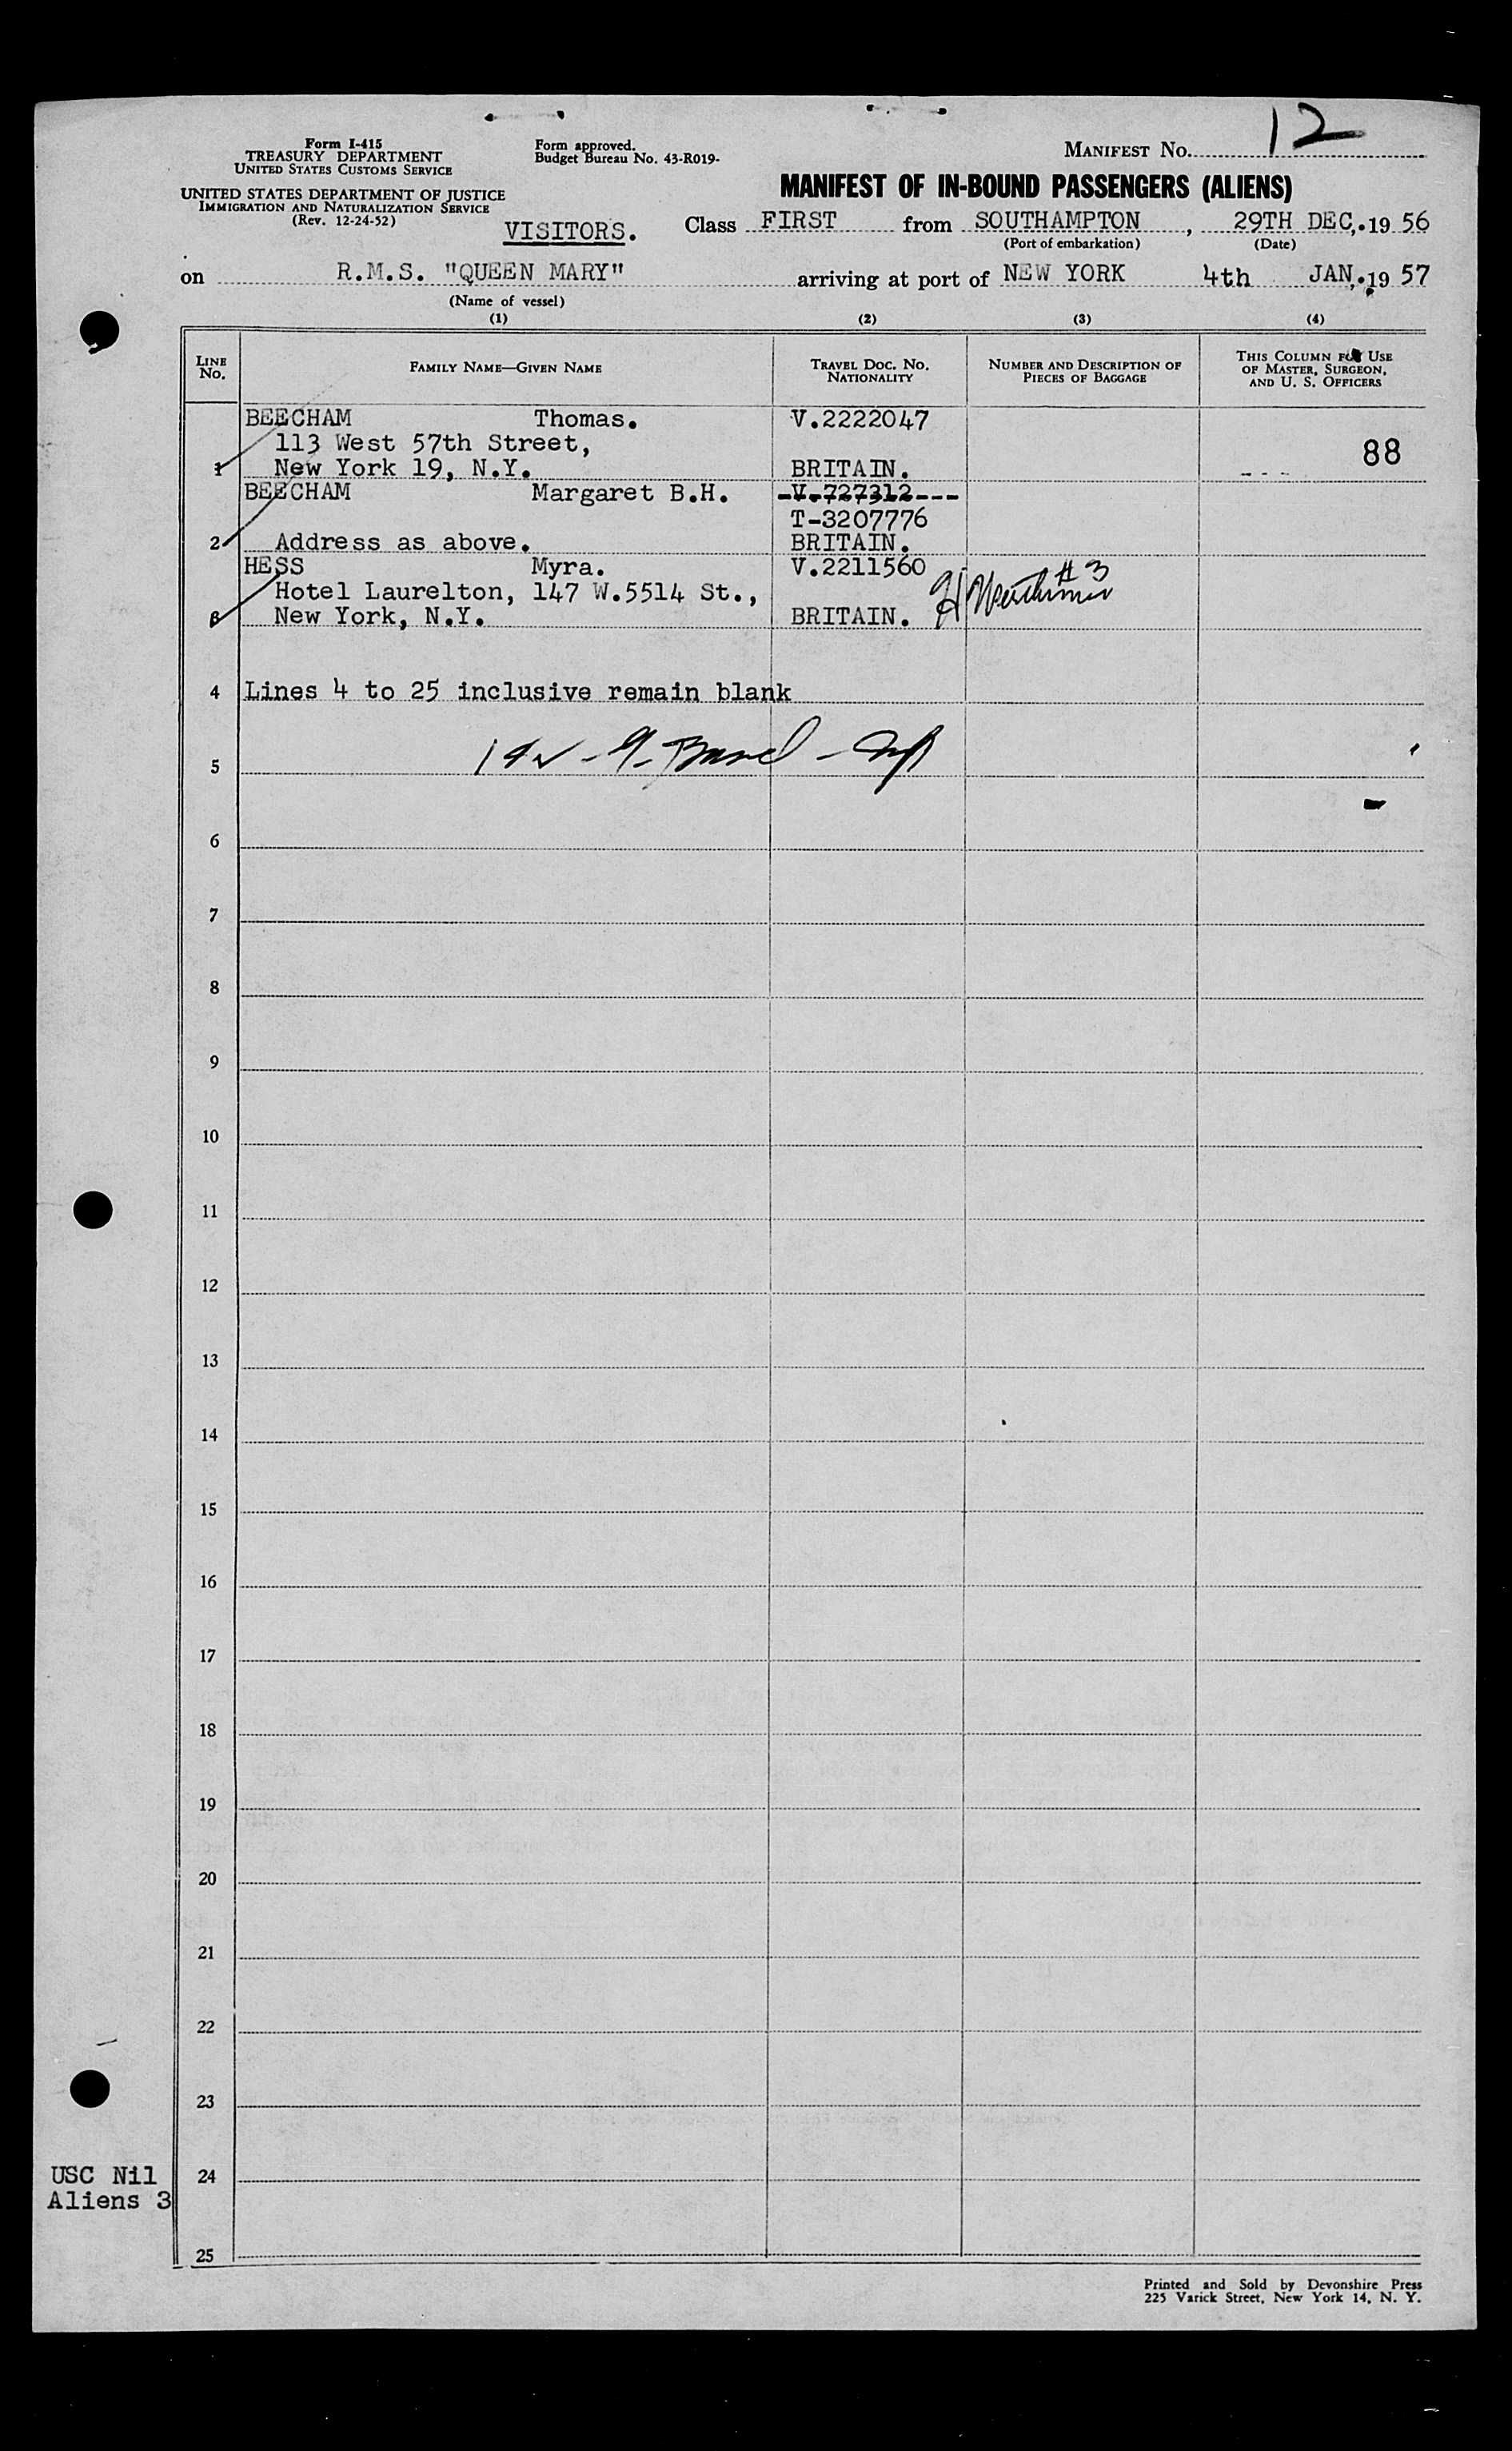 Form I-415
TREASURY DEPARTMENT
UNITED STATES CUSTOMS SERVICE
UNITED STATES DEPARTMENT OF JUSTICE
IMMIGRATION AND NATURALIZATION SERVICE
(Rev. 12-24-52)
Form approved.
Budget Bureau No. 43-R019-
MANIFEST NO. 12
MANIFEST OF IN-BOUND PASSENGERS (ALIENS)
VISITORS. Class FIRST from SOUTHAMPTON, 29TH DEC,.19 56
(Port of embarkation) (Date)
on R.M.S. "QUEEN MARY" arriving at port of NEW YORK 4th JAN,.19 57
(Name of vessel)
(1) (2) (3) (4)
LINE No. FAMILY NAME—GIVEN NAME TRAVEL DOC. NO. NATIONALITY NUMBER AND DESCRIPTION OF PIECES OF BAGGAGE THIS COLUMN FOR USE OF MASTER, SURGEON, AND U. S. OFFICERS
BEECHAM Thomas. V.2222047
113 West 57th Street, 88
1 New York 19, N.Y. BRITAIN.
BEECHAM Margaret B.H. V.727312---
T-3207776
2 Address as above. BRITAIN.
HESS Myra. V.2211560 #3
Hotel Laurelton, 147 W.5514 St.,
3 New York, N.Y. BRITAIN.
4 Lines 4 to 25 inclusive remain blank
5
6
7
8
9
10
11
12
13
14
15
16
17
18
19
20
21
22
23
USC Nil 24
Aliens 3
25
Printed and Sold by Devonshire Press
225 Varick Street, New York 14, N. Y.